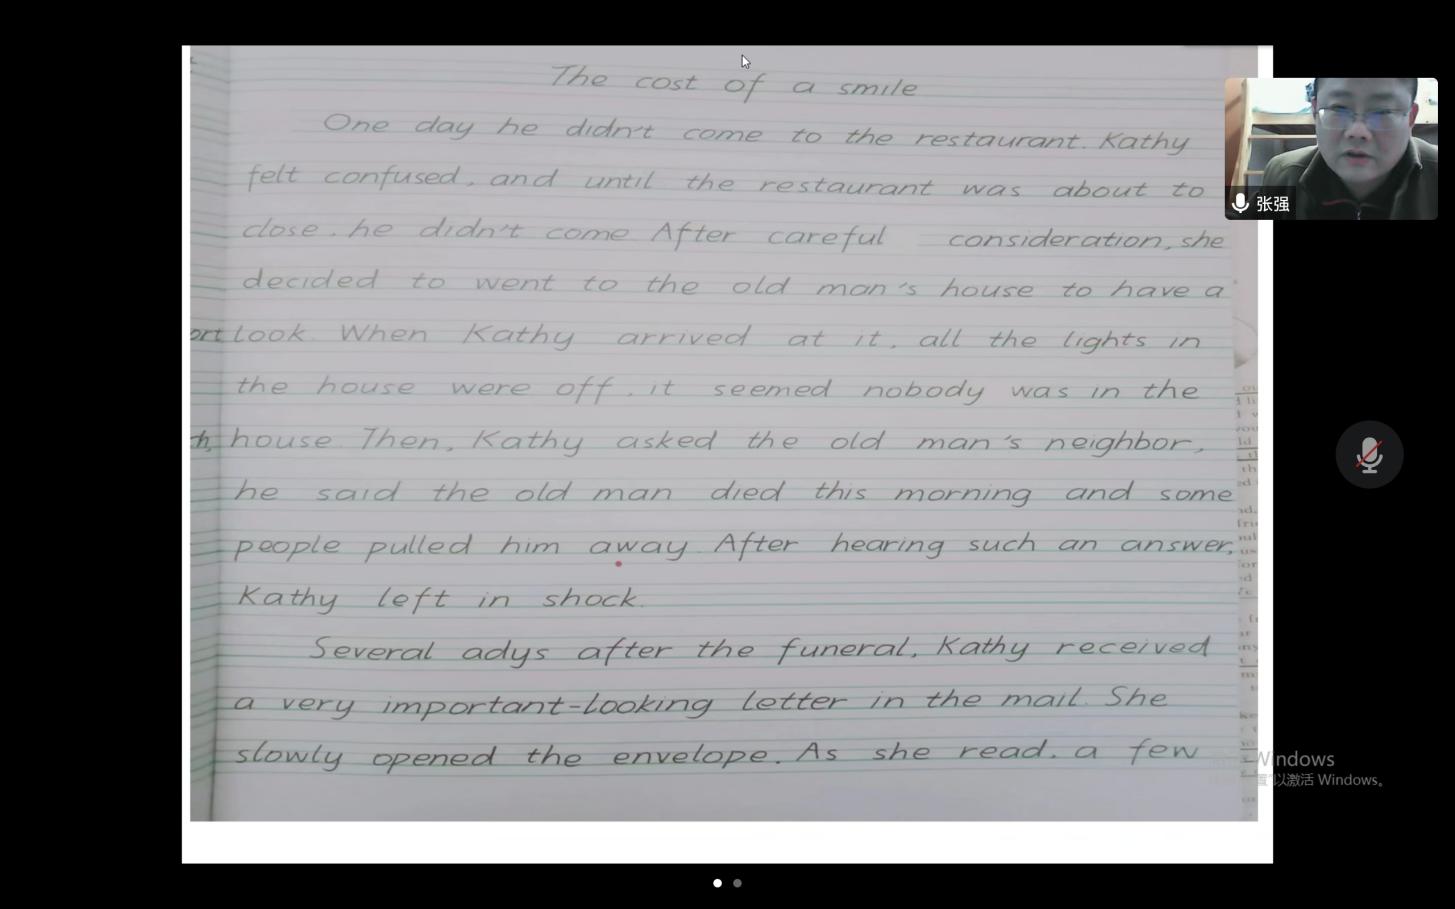 The cost of a smile
One day he didn't come to the restaurant. Kathy
felt confused, and until the restaurant was about to
close, he didn't come After careful consideration, she
decided to went to the old man's house to have a
ort look. When Kathy arrived at it, all the lights in
the house were off, it seemed nobody was in the
h, house. Then, Kathy asked the old man's neighbor,
he said the old man died this morning and some
people pulled him away. After hearing such an answer,
Kathy left in shock.
Several adys after the funeral, Kathy received
a very important-looking letter in the mail. She
slowly opened the envelope. As she read, a few
张强
Windows
置"以激活 Windows。